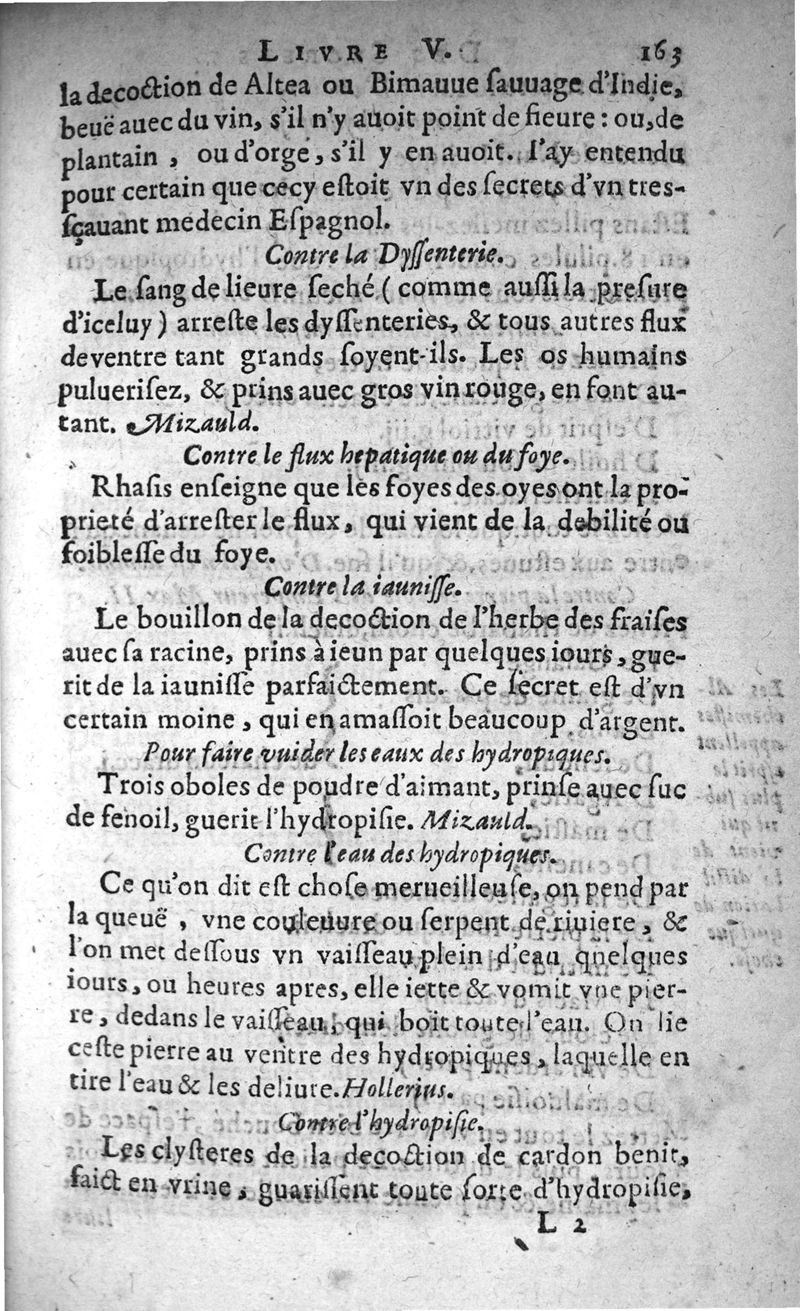 LIVRE V. 163
la decoction de Altea ou Bimauue ſauuage d'Indie,
beuë auec du vin, s'il n'y auoit point de fieure : ou, de
plantain , ou d'orge, s'il y en auoit. I'ay entendu
pour certain que cecy eſtoit vn des ſecrets d'vn tres-
ſçauant medecin Eſpagnol.
Contre la Dyſſenterie.
Le ſang de lieure ſeché ( comme auſſi la preſure
d'iceluy ) arreſte les dyſſenteries, & tous autres flux
de ventre tant grands ſoyent-ils. Les os humains
pulueriſez, & prins auec gros vin rouge, en font au-
tant. Mizauld.
Contre le flux hepatique ou du foye.
Rhaſis enſeigne que les foyes des oyes ont la pro-
prieté d'arreſter le flux, qui vient de la debilité ou
foibleſſe du foye.
Contre la iauniſſe.
Le bouillon de la decoction de l'herbe des fraiſes
auec ſa racine, prins à ieun par quelques iours, gue-
rit de la iauniſſe parfaictement. Ce ſecret eſt d'vn
certain moine , qui en amaſſoit beaucoup d'argent.
Pour faire vuider les eaux des hydropiques.
Trois oboles de poudre d'aimant, prinſe auec ſuc
de fenoil, guerit l'hydropiſie. Mizauld.
Contre l'eau des hydropiques.
Ce qu'on dit eſt choſe merueilleuſe, on pend par
la queuë , vne couleuure ou ſerpent de riuiere , &
l'on met deſſous vn vaiſſeau plein d'eau quelques
iours, ou heures apres, elle iette & vomit vne pier-
re , dedans le vaiſſeau, qui boit toute l'eau. On lie
ceſte pierre au ventre des hydropiques , laquelle en
tire l'eau & les deliure. Hollerius.
Contre l'hydropiſie.
Les clyſteres de la decoction de cardon benit,
faict en vrine , guariſſent toute ſorte d'hydropiſie,
L 2